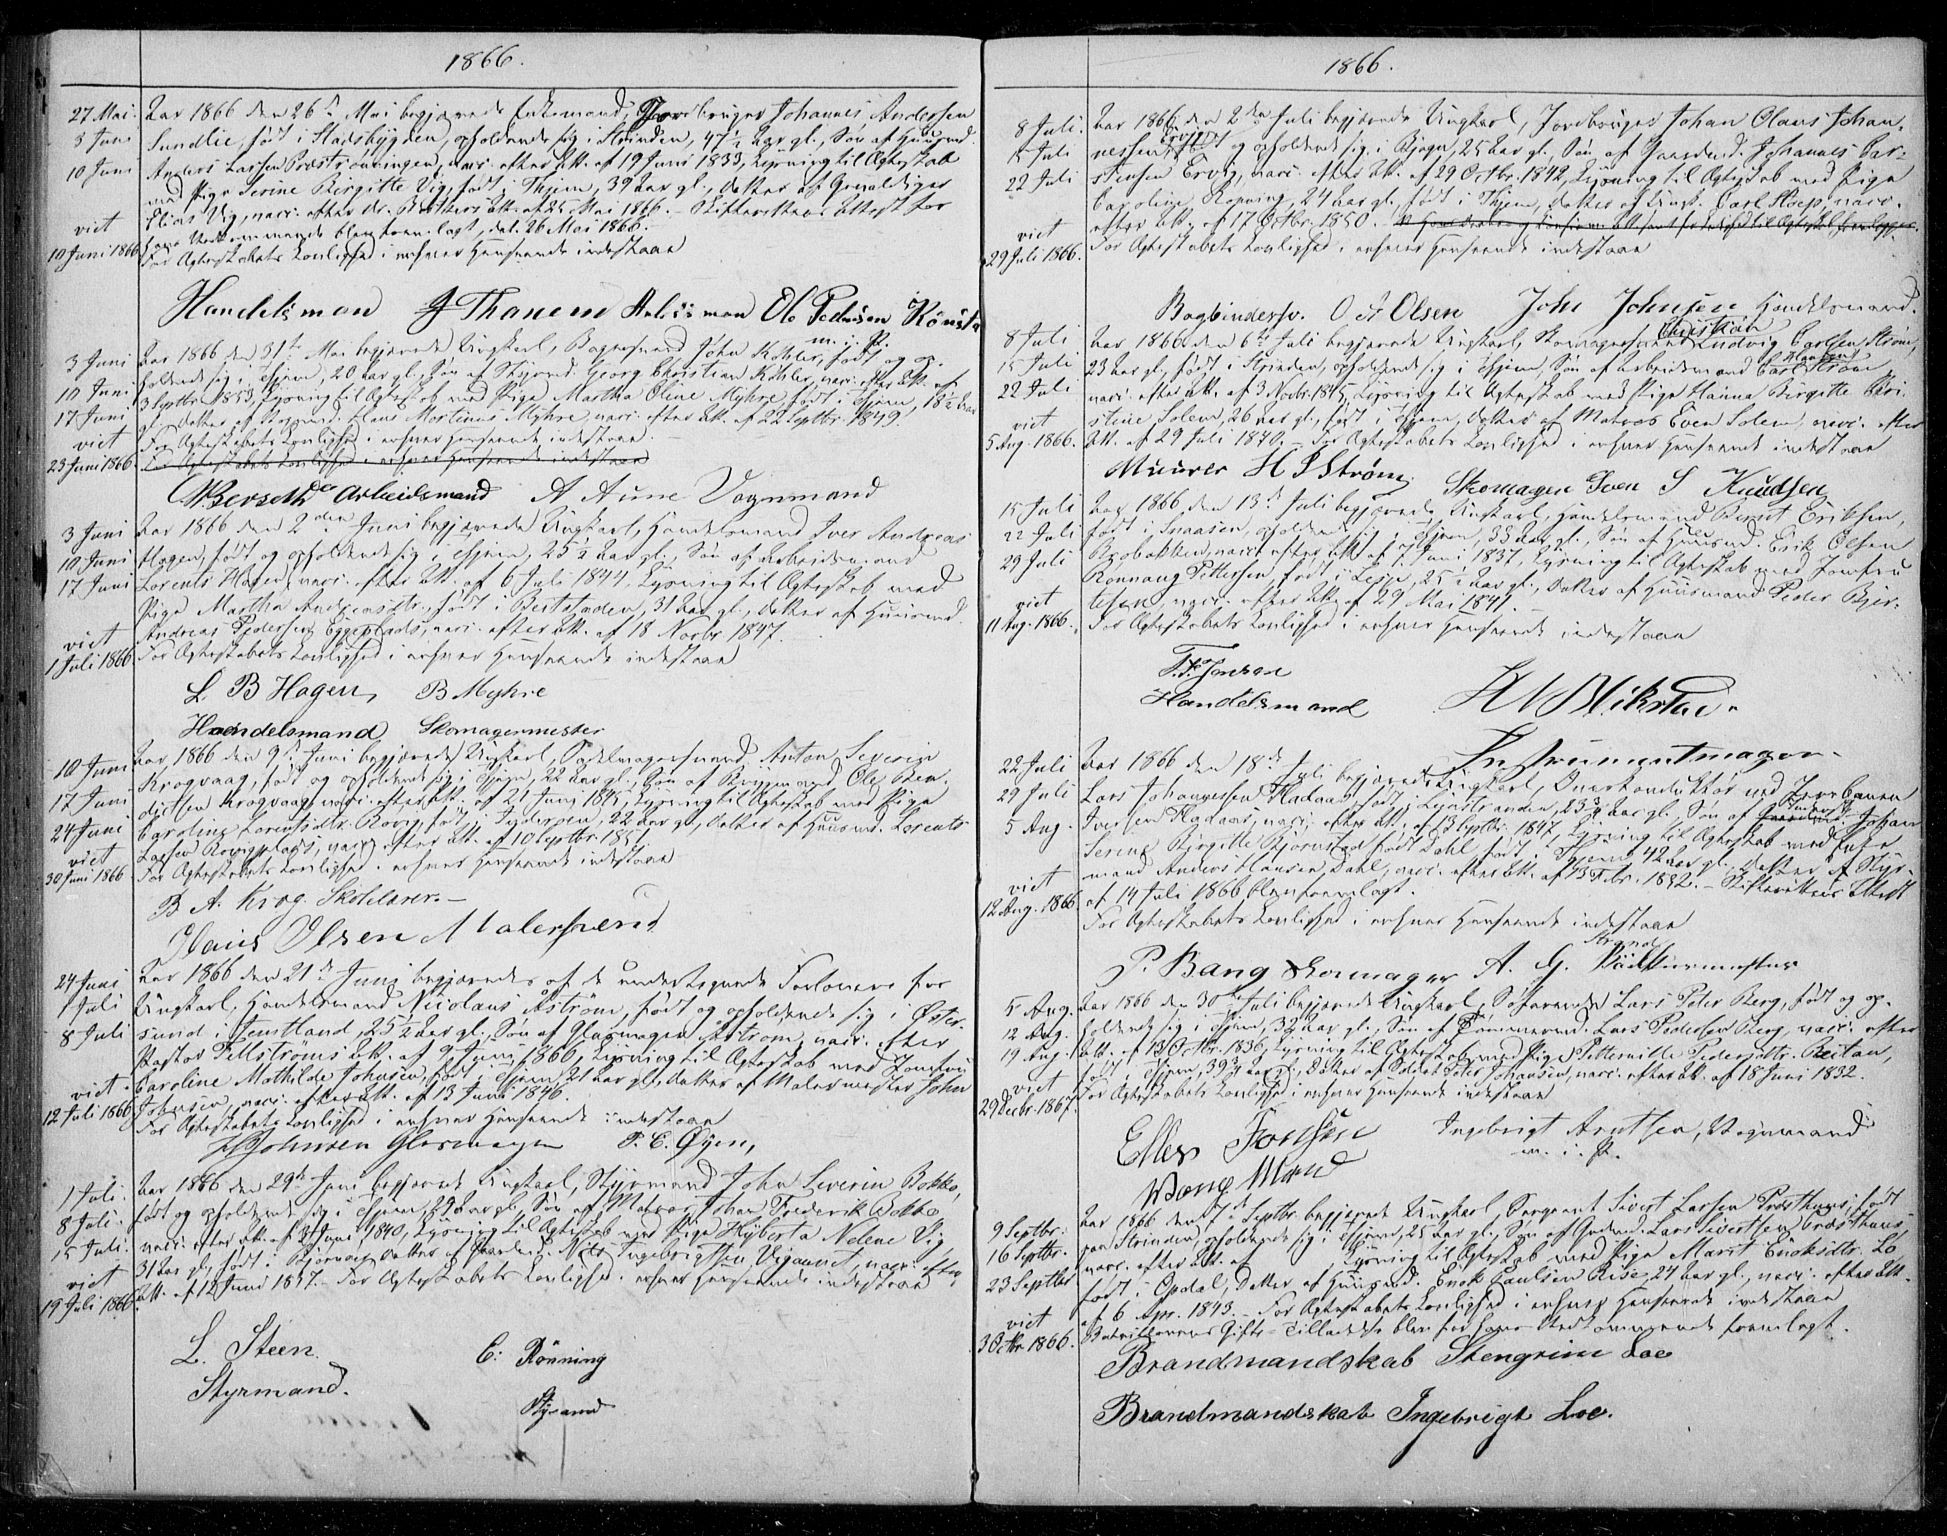 1866.
27 Mai. Aar 1866 den 26de Mai begjærede Enkemand, Jordbruger Johannes Andersen
3 Juni Sundlie, født i Stadsbygden, opholdende sig i Strinden, 47½ Aar gl., Søn af Huusmd.
10 Juni Anders Larsen efter Att. af 19 Juni 1833, Lysning til Ægteskab
med Pige Serine Birgitte Vig, født i Thjem, 39 Aar gl., Datter af
Elias Vig, vacc. efter Dr. Att. af 25 Mai 1866. – Skifterettens Attest for
viet
hans Vedkommende blev fremlagt, dat. 26 Mai 1866.
10 Juni 1866 For Ægteskabets Lovlighed i enhver Henseende indestaae
Handelsman J Thanem Arbeidsman Ole Pedersen
m. p. P.
3 Juni Aar 1866 den 31te Mai begjærede Ungkarl, John Köhler, født og op-
10 Juni holdende sig i Thjem, 20 Aar gl., Søn af Georg Christian Köhler, vacc. efter Att. af
17 Juni 3 Septbr. 1853, Lysning til Ægteskab med Pige Martha Oline Myhre, født i Thjem, 18½ Aar
gl., Datter af Hans Mortinus Myhre, vacc. efter Att. af 22 Septbr. 1849.
viet For Ægteskabets Lovlighed i enhver Henseende indestaae
23 Juni 1866. For Ægteskabets Lovlighed i enhver Henseende indestaae
Berseth Arbeidsmand A Aune Vognmand
3 Juni Aar 1866 den 2den Juni begjærede Ungkarl, Handelsmand Iver Andreas
10 Juni Hagen, født og opholdende sig i Thjem, 25½ Aar gl., Søn af Arbeidsmand
17 Juni Lorents Hagen, vacc. efter Att. af 6 Juli 1844, Lysning til Ægteskab med
Pige Martha Andreasdtr., født i Beitstaden, 31 Aar gl., Datter af Huusmd.
viet Andreas Pedersen Eggeplads, vacc. efter Att. af 18 Novbr. 1847.
1 Juli 1866 For Ægteskabets Lovlighed i enhver Henseende indestaae
L. B Hagen, B Myhre
Handelsmand Skomagermester
10 Juni Aar 1866 den 9de Juni begjærede Ungkarl, Sadelmagersvend Anton Severin
17 Juni Krogvaag, født og opholdende sig i Thjem, 22 Aar gl., Søn af Ole Ben-
24 Juni dictsen Krogvaag, vacc. efter Att. af 21 Juni 1845, Lysning til Ægteskab med Pige
Caroline Lorentsdtr. født i Inderøen, 22 Aar gl., Datter af Huusmd. Lorents
viet Larsen vacc. efter Att. af 10 Septbr. 1851.
30 Juni 1866 For Ægteskabets Lovlighed i enhver Henseende indestaae
B A. Krog, Skolelærer.–
Hans Olsen Malersvend
24 Juni Aar 1866 den 21de Juni begjæredes af de undertegnede Forlovere for
1 Juli Ungkarl, Handelsmand Nicolaus Åström, født og opholdende sig i Öster-
8 Juli sund i Jemtland, 25½ Aar gl., Søn af Glasmager Åström, vacc. efter
Pastor Fellströms Att. af 9 Juni 1860, Lysning til Ægteskab med Jomfru
viet. Caroline Mathilde Johnsen, født i Thjem, 21 Aar gl., Datter af Malermester John
12 Juli 1866 Johnsen, vacc. efter Att. af 13 Juni 1846.
For Ægteskabets Lovlighed i enhver Henseende indestaae
Johnsen Glasmager P. C. Øyen,
1 Juli. Aar 1866 den 29de Juni begjærede Ungkarl, Styrmand John Severin Bokko,
8 Juli. født og opholdende sig i Thjem, 29 Aar gl., Søn af Matros Johan Frederik Bokko,
15 Juli. vacc. efter Att. af Juni 1840, Lysning til Ægteskab med Pige Hyberta Nelene Vig
viet 31 Aar gl., født i Bjørnør, Datter af Nils Ingebrigtsen vacc. efter
19 Juli 1866. Att. af 12 Juni 1837. – For Ægteskabets Lovlighed i enhver Henseende indestaae
L. Steen. C: Rönning
Styrmand. Styrmand
1866.
8 Juli. Aar 1866 den 2den Juli begjærede Ungkarl, Jordbruger Johan Olaus Johan-
15 Juli nessen Ervig, født og opholdende sig i Bjugn, 25 Aar gl., Søn af Gaardmd. Johannes Car-
22 Juli stensen Ervig, vacc. efter Att. af 29 Octbr. 1842, Lysning til Ægteskab med Pige
Caroline Rønning, 24 Aar gl., født i Thjem, Datter af Carl vacc.
viet efter Att. af 17 1850.
29 Juli 1866. For Ægteskabets Lovlighed i enhver Henseende indestaae
Bogbindersv. O A Olsen John Johnsen Handelsmand.
8 Juli Aar 1866 den 6te Juli begjærede Ungkarl, Skomagersvend Christian Ludvig Carlsen Strøm,
15 Juli 23 Aar gl., født i Strinden, opholdende sig i Thjem, Søn af Arbeidsmand Carl Hansen Strøm
22 Juli vacc. efter Att. af 3 Novbr. 1845, Lysning til Ægteskab med Pige Hanna Birgitte Chri-
viet stine Solem, 26 Aar gl., født i Thjem, Datter af Matros Even Solem, vacc. efter
5 Aug. 1866. Att. af 29 Juli 1840. – For Ægteskabets Lovlighed i enhver Henseende indestaae
Muurer H Strøm, Skomager Sven S Knudsen
15 Juli Aar 1866 den 13de Juli begjærede Ungkarl, Handelsmand Bernt Eriksen,
22 Juli født i Snaasen, opholdende sig i Thjem, 33 Aar gl., Søn af Huusmd. Erik Olsen
29 Juli vacc. efter Att. af 7 Juni 1837, Lysning til Ægteskab med Jomfru
Rønnaug Pettersen, født i Lesje, 25½ Aar gl., Datter af Huusmand Peder
viet vacc. efter Att. af 29 Mai 1841.
11 Aug. 1866. For Ægteskabets Lovlighed i enhver Henseende indestaae
F. F. Jonsen
Handelsmand
Instrumentmager
22 Juli Aar 1866 den 18de Juli begjærede Ungkarl, Overkonduktør ved Jernbanen
29 Juli Lars Johannessen Fladaas, født i Leinstranden, 23¾ Aar gl., Søn af Johan
5 Aug. Iversen Fladaas, vacc. efter Att. af 13 Septbr. 1847, Lysning til Ægteskab med Enke
Serine Birgitte Bjørnstad født Dahl, født i Thjem, 42 Aar gl., Datter af Styr-
viet mand Anders Hansen Dahl, vacc. efter Att. af 13 Febr. 1832. – Skifterettens Attest
12 Aug. 1866 af 14 Juli 1866 blev fremlagt.
For Ægteskabets Lovlighed i enhver Henseende indestaae
P. Bang Skomager A. G. Strand
5 Aug. Aar 1866 den 30te Juli begjærede Ungkarl, Søfarende Lars Peter Berg, født og op-
12 Aug. holdende sig i Thjem, 32 Aar gl., Søn af Tømmermd. Lars Pedersen Berg, vacc. efter
19 Aug. Att. af 13 Octbr. 1836, Lysning til Ægteskab med Pige Petternille Pedersdtr. Reitan,
viet født i Thjem, 39¾ Aar gl., Datter af Soldat Peter Johansen, vacc. efter Att. af 18 Juni 1832.
29 Decbr. 1867. For Ægteskabets Lovlighed i enhver Henseende indestaae
Ellev Ingebrigt Arntsen, Vognmand
m. p. P.
9 Septbr. Aar 1866 den 7de Septbr. begjærede Ungkarl, Sergeant Sivert Larsen Presthuus, født
16 Septbr. paa Strinden, opholdende sig i Thjem, 25 Aar gl., Søn af Gaardmd. Lars Sivertsen Presthuus,
vacc. efter Att. af Lysning til Ægteskab med Pige Marit Enoksdtr. Lo
23 Septbr født i Opdal, Datter af Huusmd. Enok Paulsen Rise, 24 Aar gl., vacc. efter Att.
viet af 6 Apr. 1843. – For Ægteskabets Lovlighed i enhver Henseende indestaae
3 Octbr 1866. Bataillonens Gifte-Tilladelse blev for hans Vedkommende fremlagt.
Brandmandskab Stengrim Loe
Brandmandskab Ingebrigt Loe.